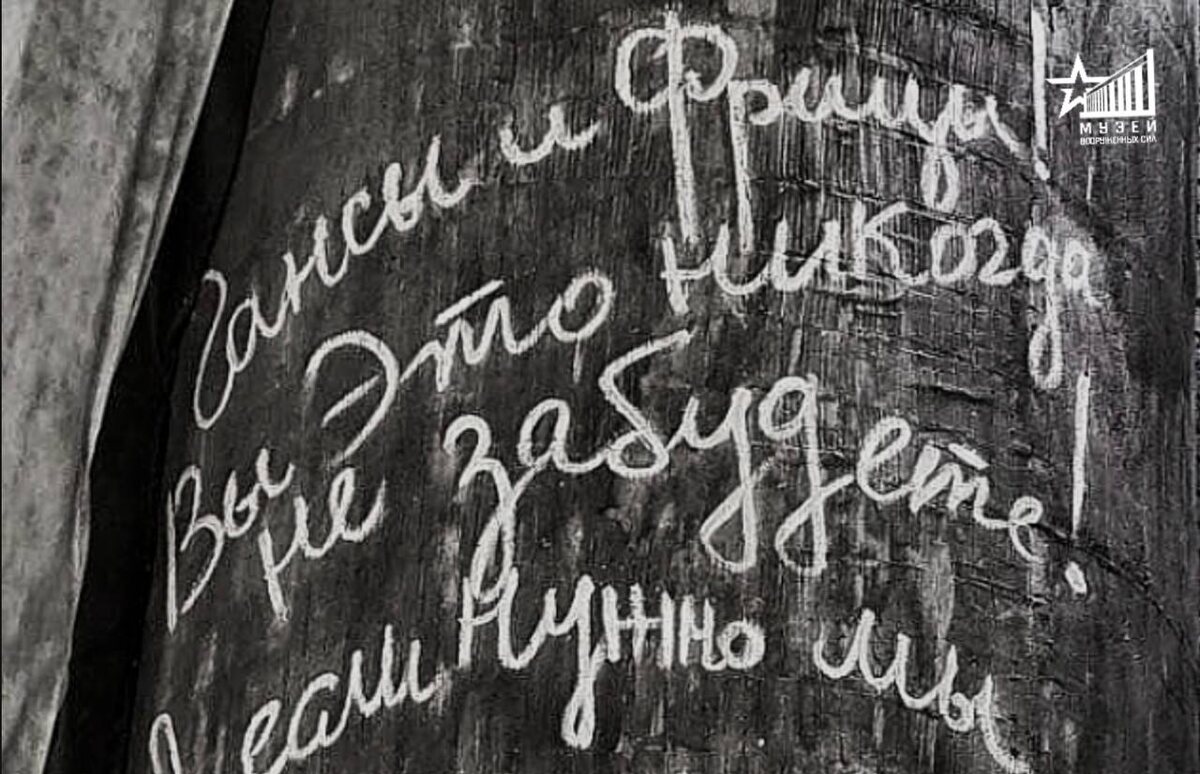 Гансы и Фрицы!
Вы это никогда
не забудете!
если нужно мы
МУЗЕЙ
ВООРУЖЕННЫХ СИЛ